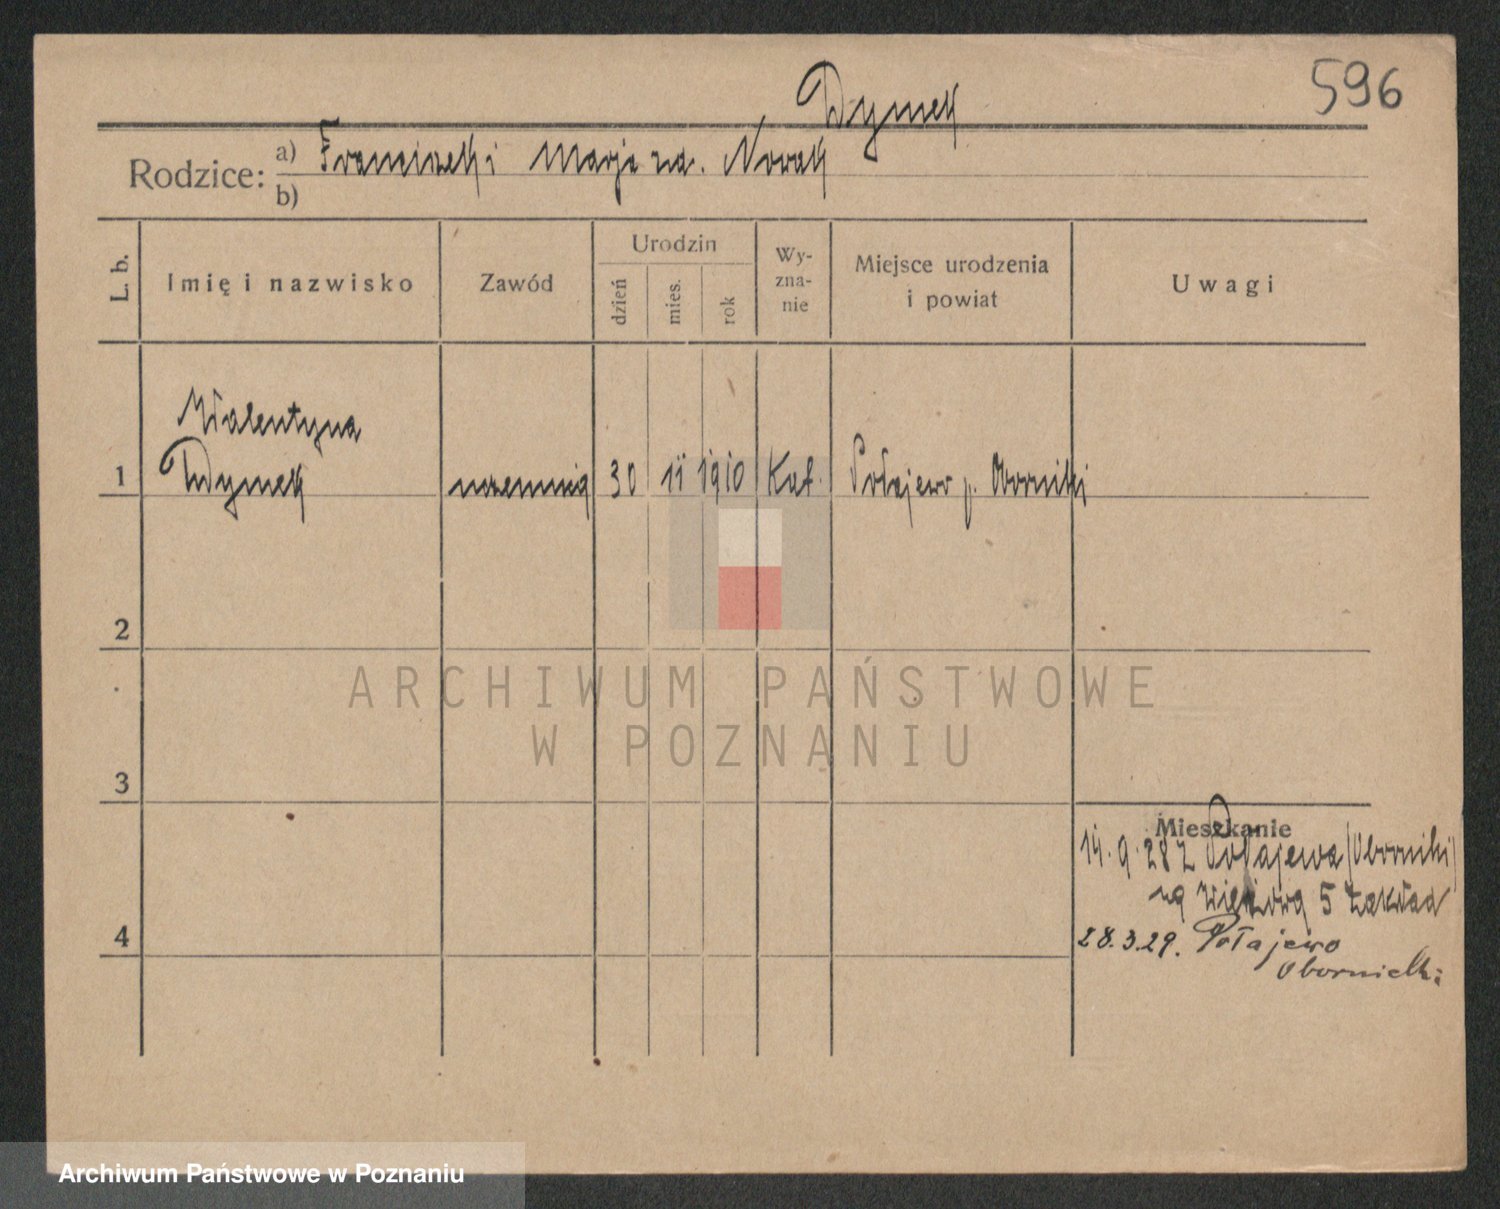 596
Dymek
Rodzice: a) Franciszek i Marja za. Nowak
b)
L. b.
Imię i nazwisko
Zawód
Urodzin
dzień
mies.
rok
Wy-
zna-
nie
Miejsce urodzenia
i powiat
Uwagi
Walentyna
1 Dymek uczennica 30 11 1910 Kat. Połajewo p. Oborniki
2
3
4
Mieszkanie
14.9.28 z Połajewa (Oborniki)
na Wieżową 5 Zakład
28.3.29. Połajewo
Oborniki
ARCHIWUM PAŃSTWOWE
W POZNANIU
Archiwum Państwowe w Poznaniu